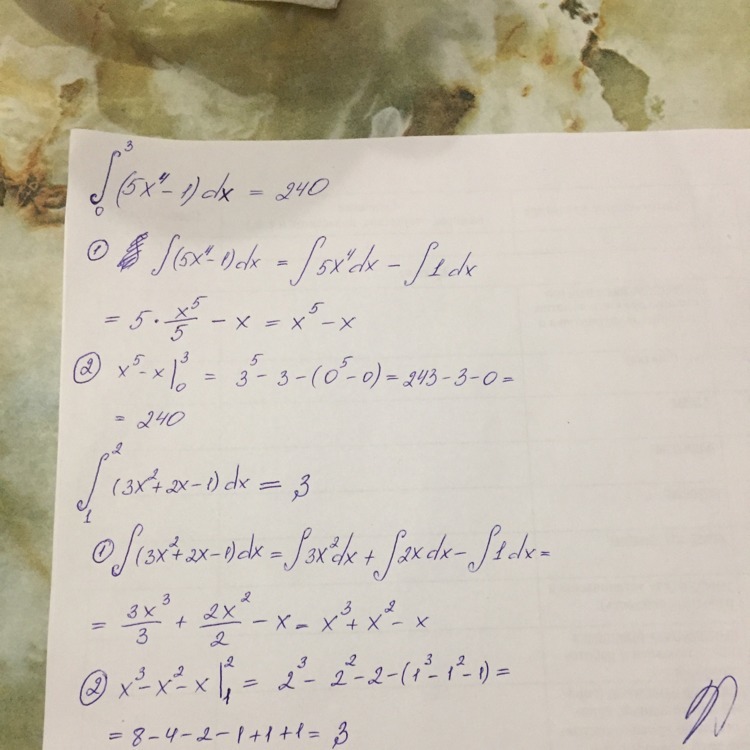 ∫₀³ (5x⁴ - 1) dx = 240
① ∫(5x⁴ - 1) dx = ∫5x⁴ dx - ∫1 dx
= 5 · x⁵/5 - x = x⁵ - x
② x⁵ - x |₀³ = 3⁵ - 3 - (0⁵ - 0) = 243 - 3 - 0 =
= 240
∫₁² (3x² + 2x - 1) dx = 3
① ∫(3x² + 2x - 1) dx = ∫3x² dx + ∫2x dx - ∫1 dx =
= 3x³/3 + 2x²/2 - x = x³ + x² - x
② x³ - x² - x |₁² = 2³ - 2² - 2 - (1³ - 1² - 1) =
= 8 - 4 - 2 - 1 + 1 + 1 = 3